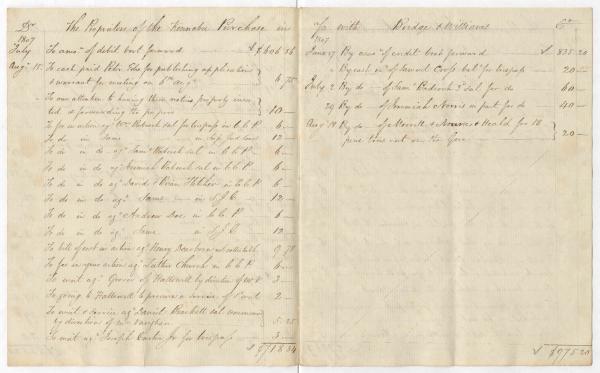 Dr. The Proprietors of the Kennebec Purchase in
1807
July To amo. of debit brot forward $606 56
Augt 15. To cash paid Peter Edes for publishing application
& warrant for meeting on 6th augt 6 75
To our attention to having these notices properly inser-
ted & forwarding the papers 10 —
To fee in action agt Wm Babcock sal for trespass in C. C. P. 6 —
To do in same in Sup Jud Court 12 —
To do in do agt Saml Babcock sal in C. C. P. 6 —
To do in do agt Jeremiah Babcock sal in C. C. P. 6 —
To do in do agt David & Brian Fletcher in C. C. P. 6 —
To do in do agt Same in S. J. C. 12 —
To do in do agt Andrew Doe in C. C. P. 6 —
To do in do agt Same in S. J. C. 12 —
To bill of cost in action agt Henry Dearborn not collectable 9 78
To fee in your action agt Luther Church in C. C. P. 6 —
To writ agt Grover of Hallowell by direction of 3 —
To going to Hallowell to procure a service of sd writ 2 —
To writ & service agt Daniel Brackett sal
by direction of Mr Vaughan 5 25
To writ agt Joseph Carter Jr for trespass 3 —
$718 34
To with Bridge & Williams Cr
1807
June 27 By amo of credit brot forward $ 835 20
By cash in of Samuel Cross bal for trespass 20 —
July 2 By do of Saml Babcock 2d sal for do 60 —
29 By do of Jeremiah Norris in part for do 40 —
Augt 14 By do of Morrill & Norris & Heald for 18
pine trees cut on the Gore 20 —
$ 975 20